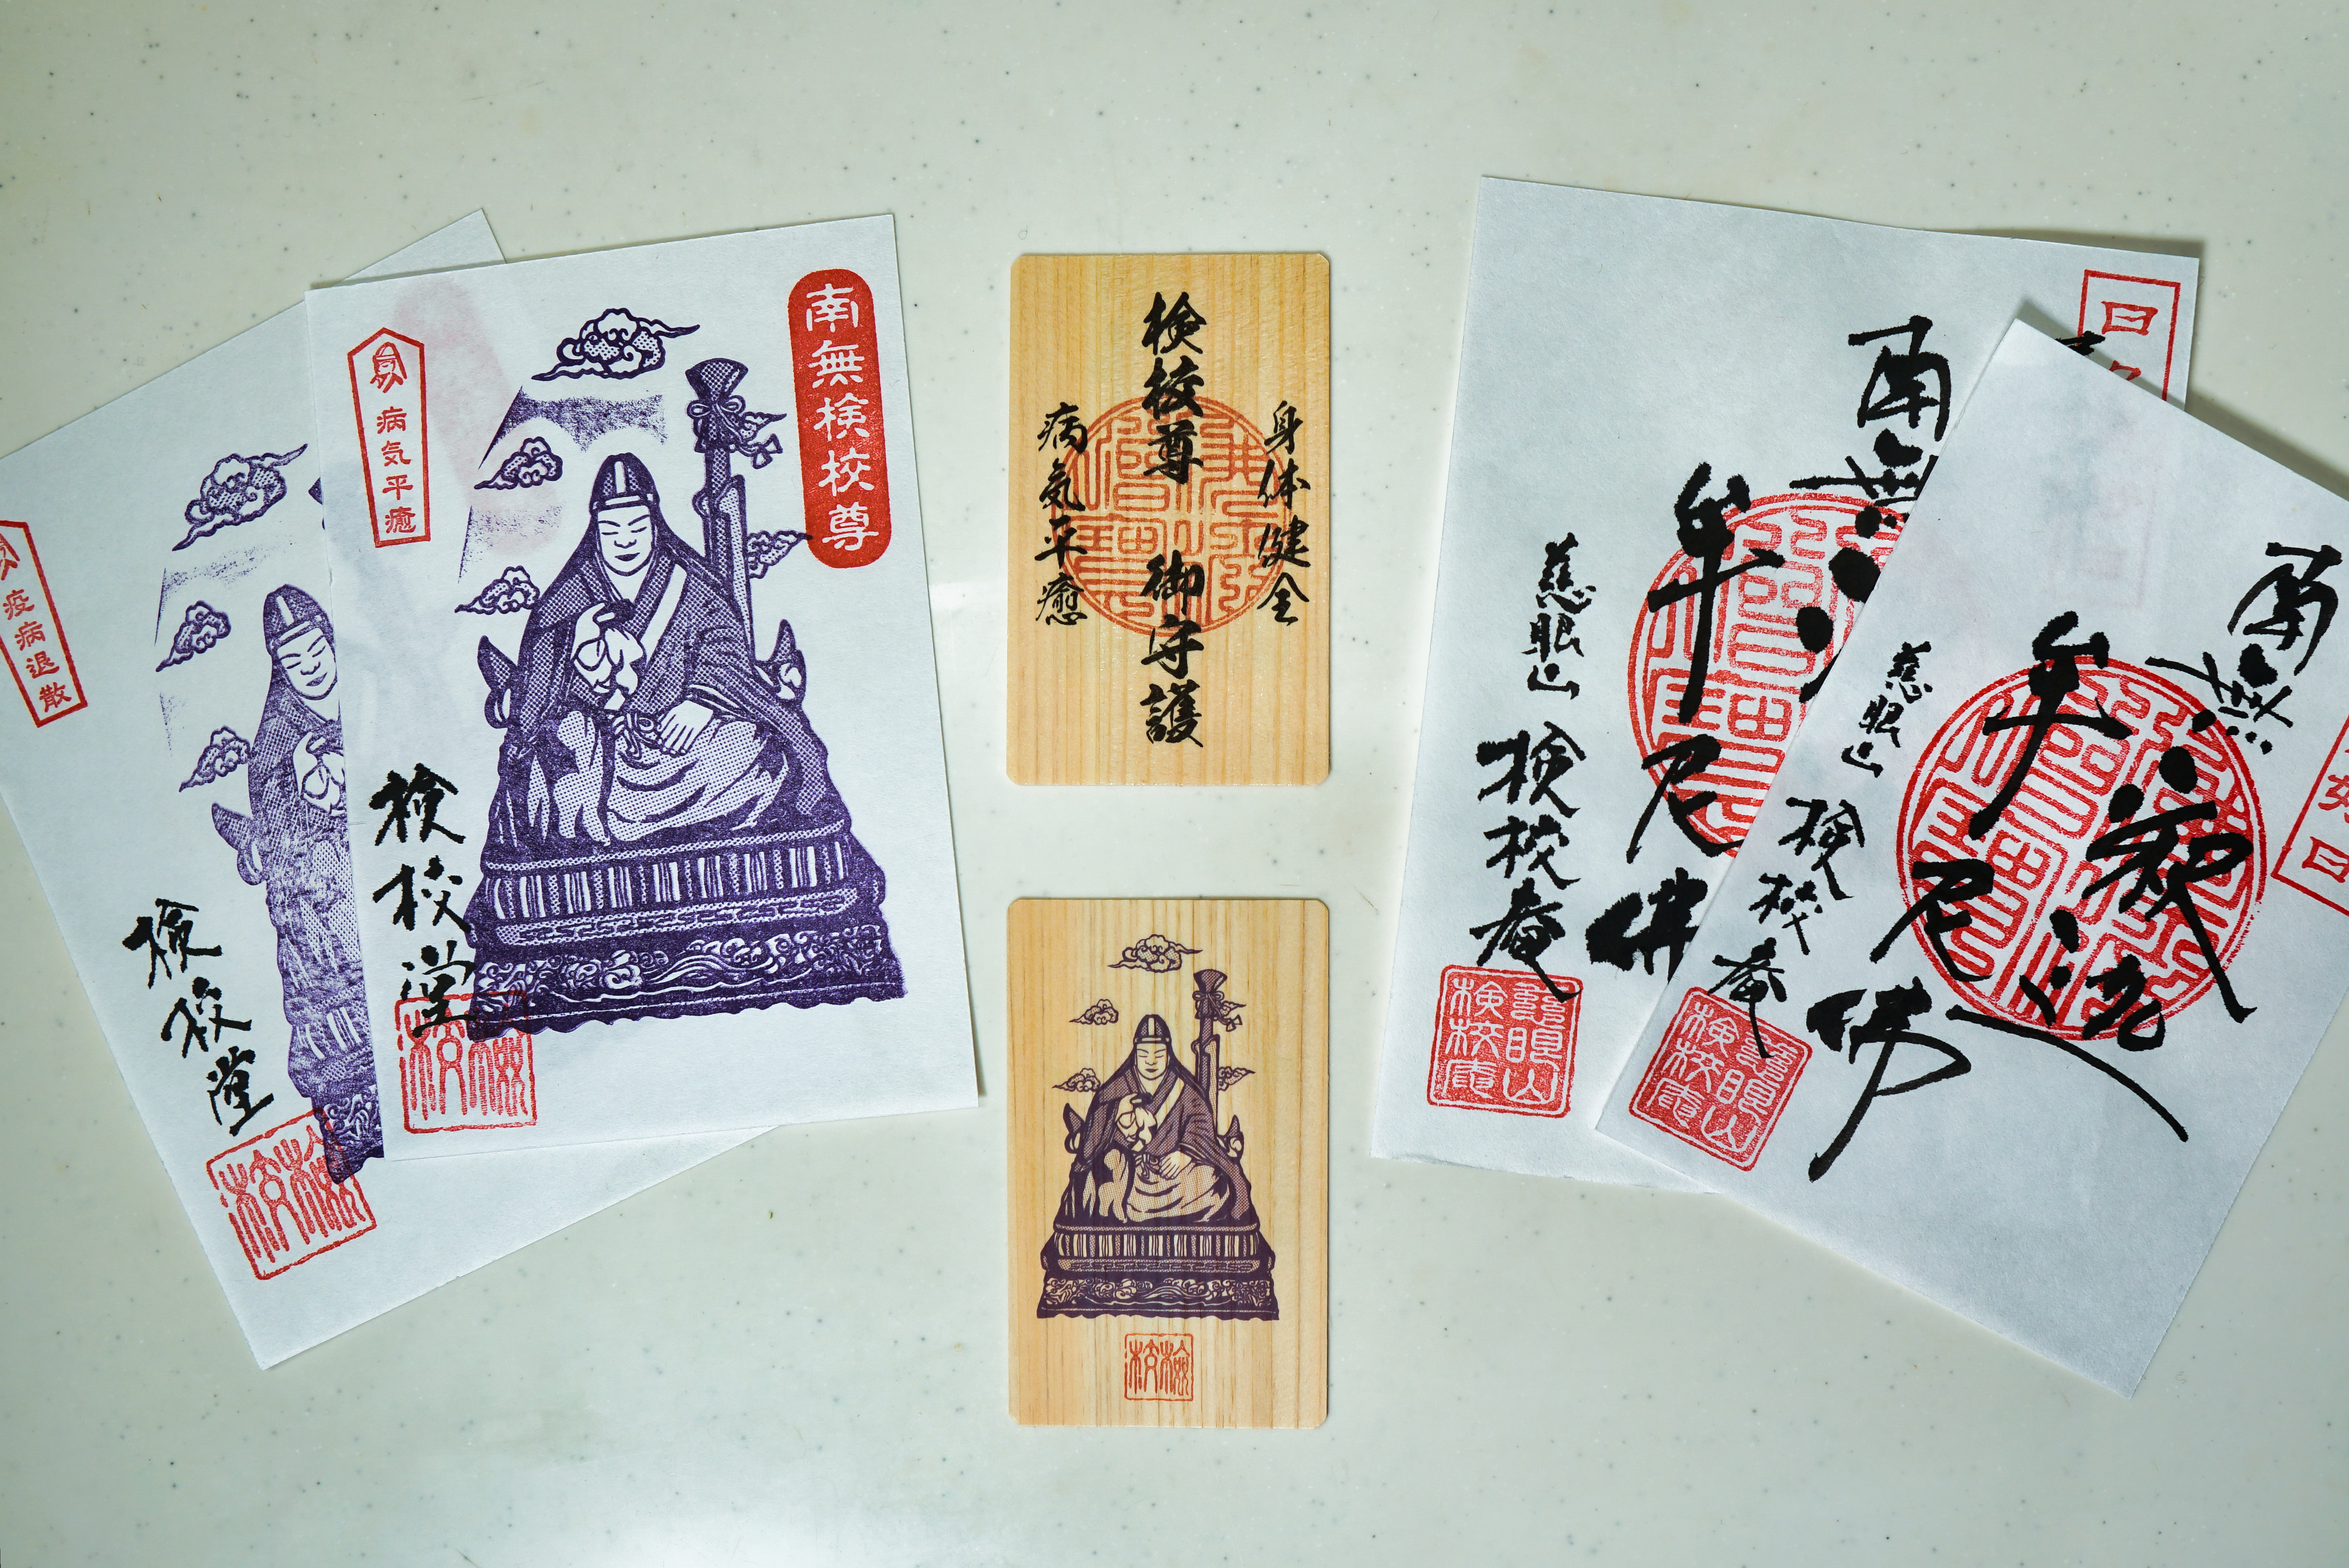 疫病退散
検校堂
検校
南無検校尊
病気平癒
検校堂
検校
身体健全
検校尊 御守護
病気平癒
検校
南無
牟尼佛
慈眼山 検校庵
慈眼山検校庵
南無
釈迦
牟尼佛
慈眼山 検校庵
慈眼山検校庵